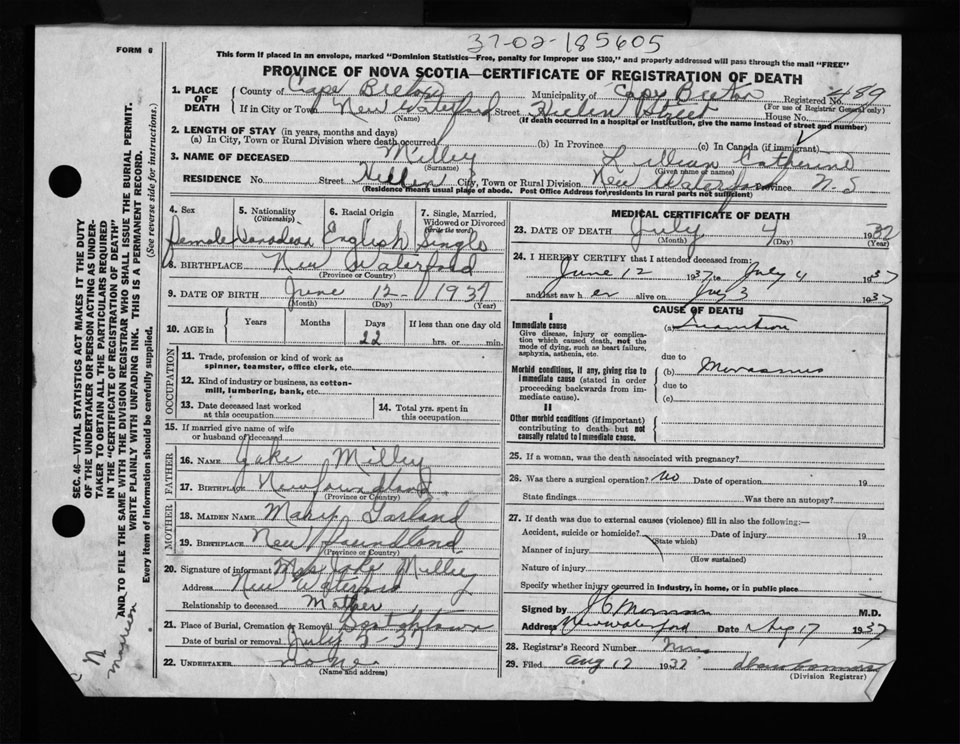 37-02-185605
FORM 6
This form if placed in an envelope, marked "Dominion Statistics—Free, penalty for improper use $300," and properly addressed will pass through the mail "FREE"
PROVINCE OF NOVA SCOTIA—CERTIFICATE OF REGISTRATION OF DEATH
1. PLACE OF DEATH
County of Cape Breton Municipality of Cape Breton Registered No. 489
(For use of Registrar General only)
If in City or Town New Waterford Street Street House No.
(Name) (If death occurred in a hospital or institution, give the name instead of street and number)
2. LENGTH OF STAY (in years, months and days)
(a) In City, Town or Rural Division where death occurred (b) In Province (c) In Canada (if immigrant)
3. NAME OF DECEASED Milley Lillian Catherine
(Surname) (Given name or names)
RESIDENCE No. Street City, Town or Rural Division New Waterford Province N-S
(Residence means usual place of abode. Post Office Address for residents in rural parts not sufficient)
4. Sex
female
5. Nationality
(Citizenship)
Canadian
6. Racial Origin
English
7. Single, Married, Widowed or Divorced
(Write the word)
Single
8. BIRTHPLACE New Waterford
(Province or Country)
9. DATE OF BIRTH June 12 - 1937
(Month) (Day) (Year)
10. AGE in Years Months Days If less than one day old
22 hrs. or min.
OCCUPATION
11. Trade, profession or kind of work as
spinner, teamster, office clerk, etc.
12. Kind of industry or business, as cotton-
mill, lumbering, bank, etc.
13. Date deceased last worked
at this occupation
14. Total yrs. spent in
this occupation
15. If married give name of wife
or husband of deceased
FATHER
16. NAME Jake Milley
17. BIRTHPLACE Newfoundland
(Province or Country)
MOTHER
18. MAIDEN NAME Mary Garland
19. BIRTHPLACE New foundland
(Province or Country)
20. Signature of informant Mrs Jake Milley
Address New Waterford
Relationship to deceased Mother
21. Place of Burial, Cremation or Removal
Date of burial or removal July 5-37
22. UNDERTAKER none
(Name and address)
MEDICAL CERTIFICATE OF DEATH
23. DATE OF DEATH July 4 1937
(Month) (Day) (Year)
24. I HEREBY CERTIFY that I attended deceased from:
June 12 1937 to July 4 1937
and last saw her alive on July 3 1937
CAUSE OF DEATH
I
Immediate cause (a) Inanition
Give disease, injury or complica-
tion which caused death, not the
mode of dying, such as heart failure,
asphyxia, asthenia, etc.
due to
Morbid conditions, if any, giving rise to
immediate cause (stated in order
proceeding backwards from im-
mediate cause).
(b) Marasmus
due to
(c)
II
Other morbid conditions (if important)
contributing to death but not
causally related to immediate cause.
25. If a woman, was the death associated with pregnancy?
26. Was there a surgical operation? No Date of operation 19
State findings Was there an autopsy?
27. If death was due to external causes (violence) fill in also the following:—
Accident, suicide or homicide? Date of injury 19
(State which)
Manner of injury
(How sustained)
Nature of injury
Specify whether injury occurred in industry, in home, or in public place
Signed by M.D.
Address New Waterford Date Aug 17 1937
28. Registrar's Record Number
29. Filed Aug 17 1937
(Division Registrar)
SEC. 46—VITAL STATISTICS ACT MAKES IT THE DUTY
OF THE UNDERTAKER OR PERSON ACTING AS UNDER-
TAKER TO OBTAIN ALL THE PARTICULARS REQUIRED
IN THE "CERTIFICATE OF REGISTRATION OF DEATH"
AND TO FILE THE SAME WITH THE DIVISION REGISTRAR WHO SHALL ISSUE THE BURIAL PERMIT.
WRITE PLAINLY WITH UNFADING INK. THIS IS A PERMANENT RECORD.
Every item of information should be carefully supplied. (See reverse side for instructions.)